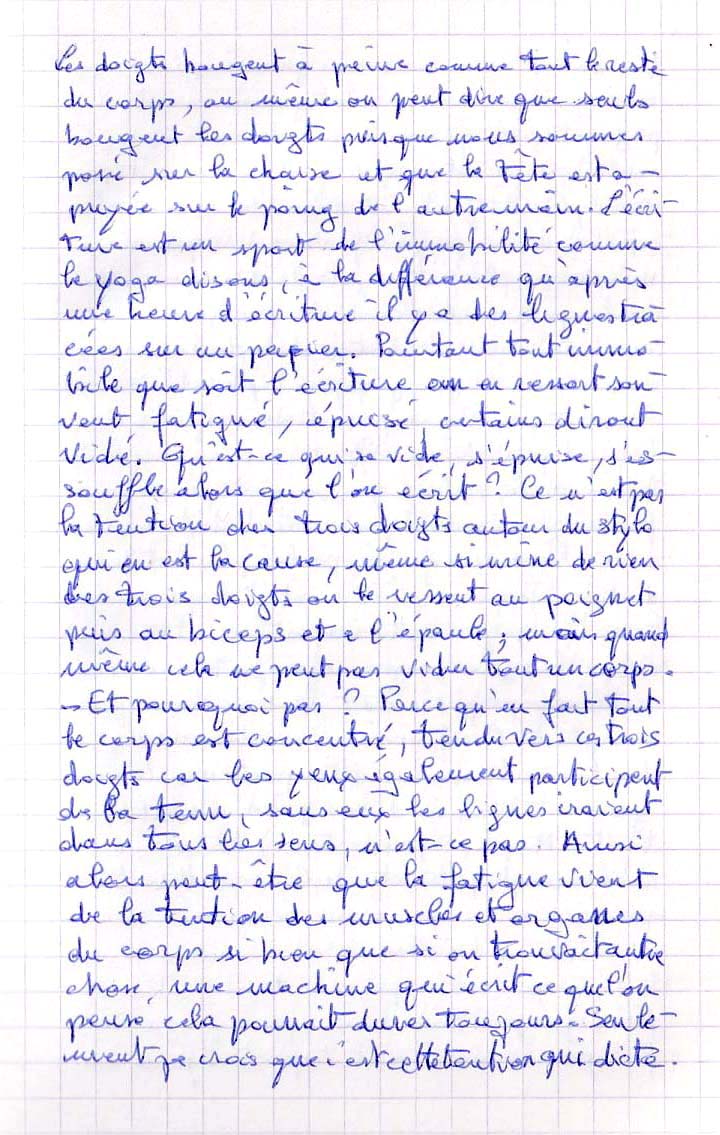 Les doigts bougent à peine comme tout le reste
du corps, ou même on peut dire que seuls
bougent les doigts puisque nous sommes
posé sur la chaise et que la tête est a-
puyée sur le poing de l'autre main. L'écri-
ture est un sport de l'immobilité comme
le yoga disons, à la différence qu'après
une heure d'écriture il y a des lignes tra
cées sur un papier. Pourtant tout immo-
bile que soit l'écriture on en ressort sou-
vent fatigué, épuisé, certains diront
vidé. Qu'est-ce qui se vide, s'épuise, s'es-
souffle alors que l'on écrit ? Ce n'est pas
la tention des trois doigts autour du stylo
qui en est la cause, même si mine de rien
des trois doigts on le ressent au poignet
puis au biceps et à l'épaule ; mais quand
même cela ne peut pas vider tout un corps.
- Et pourquoi pas ? Parce qu'en fait tout
le corps est concentré, tendu vers ces trois
doigts car les yeux également participent
de la tenu, sans eux les lignes iraient
dans tous les sens, n'est-ce pas. Aussi
alors peut-être que la fatigue vient
de la tention des muscles et organes
du corps si bien que si on trouvait autre
chose, une machine qui écrit ce que l'on
pense, cela pourrait durer toujours. Seule-
ment je crois que c'est cette tention qui dicte.